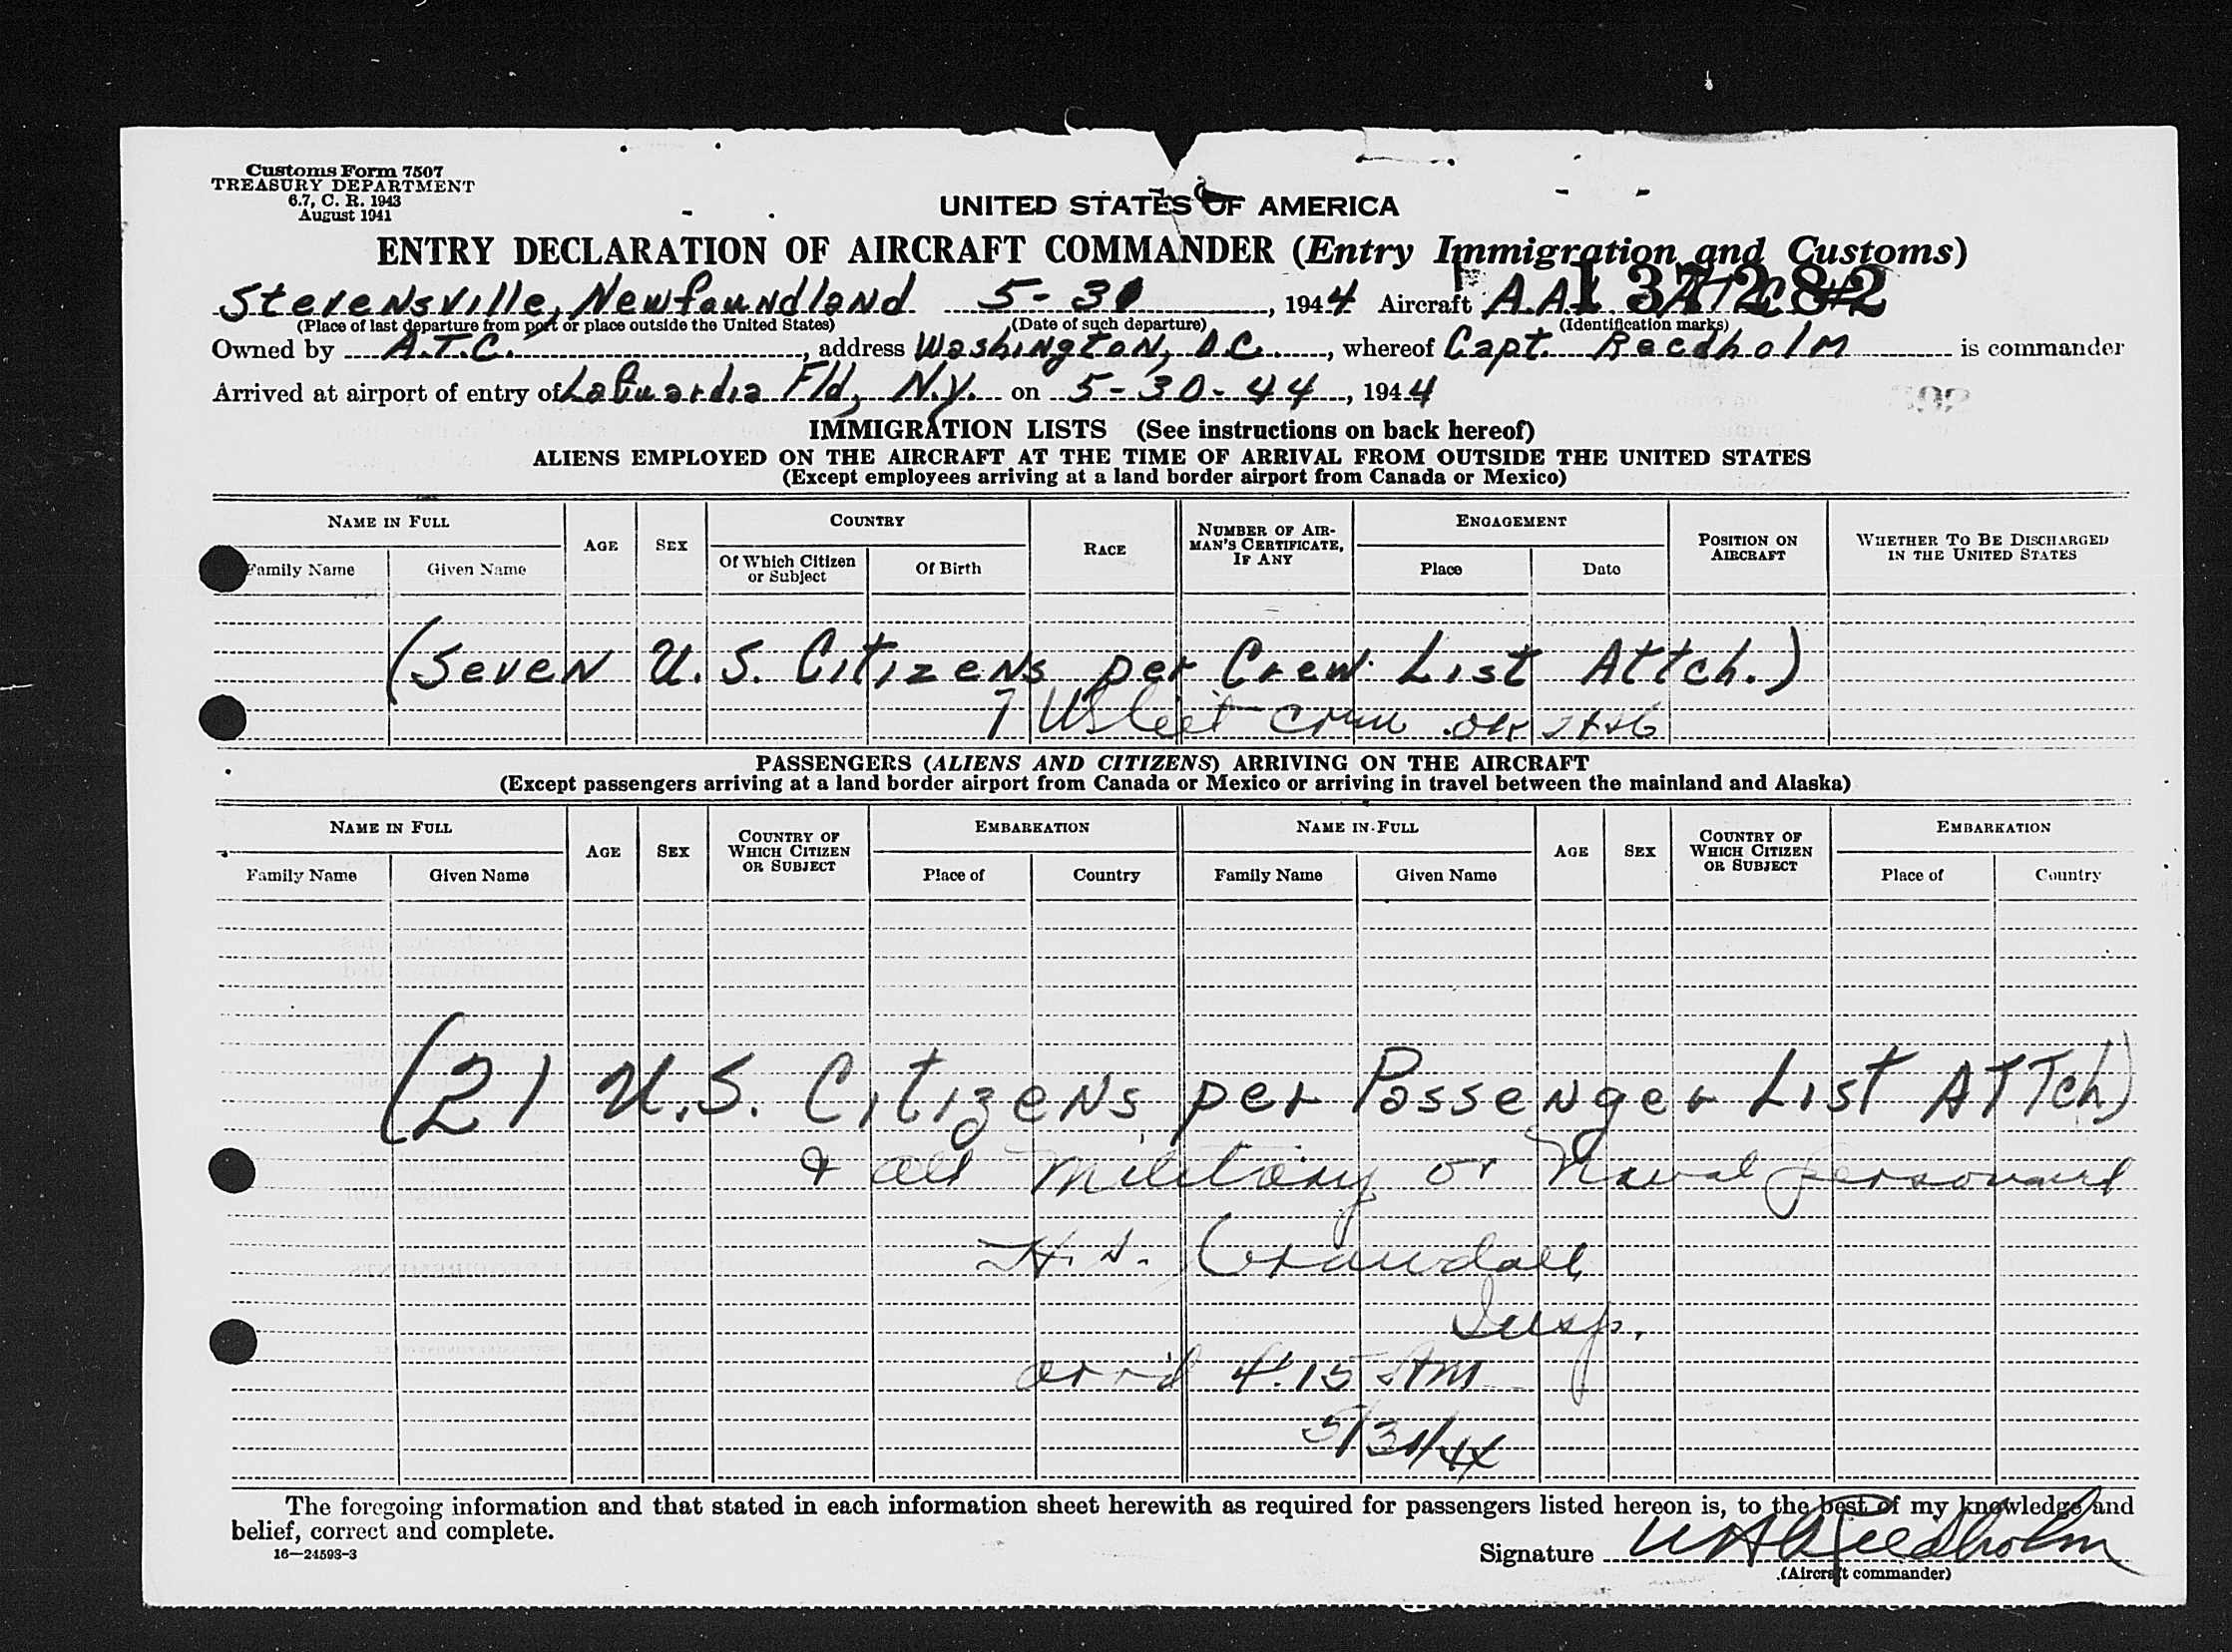 Customs Form 7507
TREASURY DEPARTMENT
6.7, C. R. 1943
August 1941
UNITED STATES OF AMERICA
ENTRY DECLARATION OF AIRCRAFT COMMANDER (Entry Immigration and Customs)
Stevensville, Newfoundland 5-30, 1944 Aircraft A.A. 137282
(Place of last departure from port or place outside the United States) (Date of such departure) (Identification marks)
Owned by A.T.C., address Washington, D.C., whereof Capt. Reedholm is commander
Arrived at airport of entry of LaGuardia Fld, N.Y. on 5-30-44, 1944
IMMIGRATION LISTS (See instructions on back hereof)
ALIENS EMPLOYED ON THE AIRCRAFT AT THE TIME OF ARRIVAL FROM OUTSIDE THE UNITED STATES
(Except employees arriving at a land border airport from Canada or Mexico)
NAME IN FULL AGE SEX COUNTRY RACE NUMBER OF AIRMAN'S CERTIFICATE, IF ANY ENGAGEMENT POSITION ON AIRCRAFT WHETHER TO BE DISCHARGED IN THE UNITED STATES
Family Name Given Name Of Which Citizen or Subject Of Birth Place Date
(Seven U.S. Citizens per Crew List Attch.)
7 US Cit crew ok
PASSENGERS (ALIENS AND CITIZENS) ARRIVING ON THE AIRCRAFT
(Except passengers arriving at a land border airport from Canada or Mexico or arriving in travel between the mainland and Alaska)
NAME IN FULL AGE SEX COUNTRY OF WHICH CITIZEN OR SUBJECT EMBARKATION NAME IN FULL AGE SEX COUNTRY OF WHICH CITIZEN OR SUBJECT EMBARKATION
Family Name Given Name Place of Country Family Name Given Name Place of Country
(21 U.S. Citizens per Passenger List ATTch)
& all Military or Naval personnel
H. S. Crandall
Insp.
arr'd 4:15 AM
5/31/44
The foregoing information and that stated in each information sheet herewith as required for passengers listed hereon is, to the best of my knowledge and
belief, correct and complete.
16—24593-3
Signature W A Reedholm
(Aircraft commander)